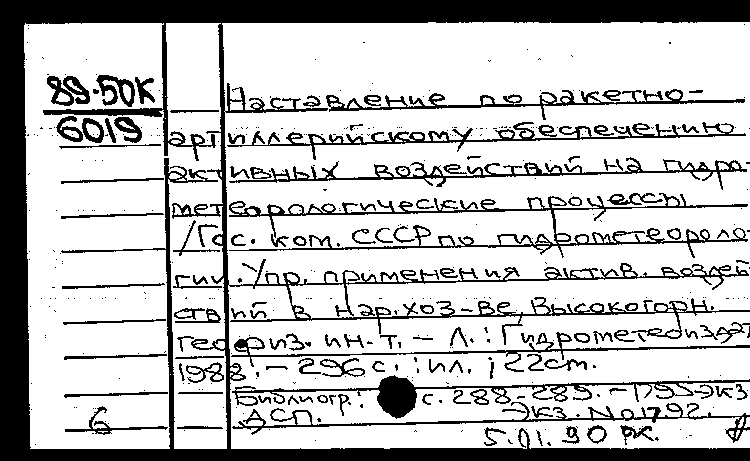 89-50К
6019
Наставление по ракетно-
артиллерийскому обеспечению
активных воздействий на гидро-
метеорологические процессы
/Гос. ком. СССР по гидрометеороло-
гии. Упр. применения актив. воздей
ствий в нар. хоз-ве, Высокогорн.
геофиз. ин-т. – Л. : Гидрометеоиздат
1988. – 296 с. : ил. ; 22 см.
Библиогр.: с. 288-289. – 1795 экз
ДСП. Экз. No 1792.
6
5.01.90 РК.